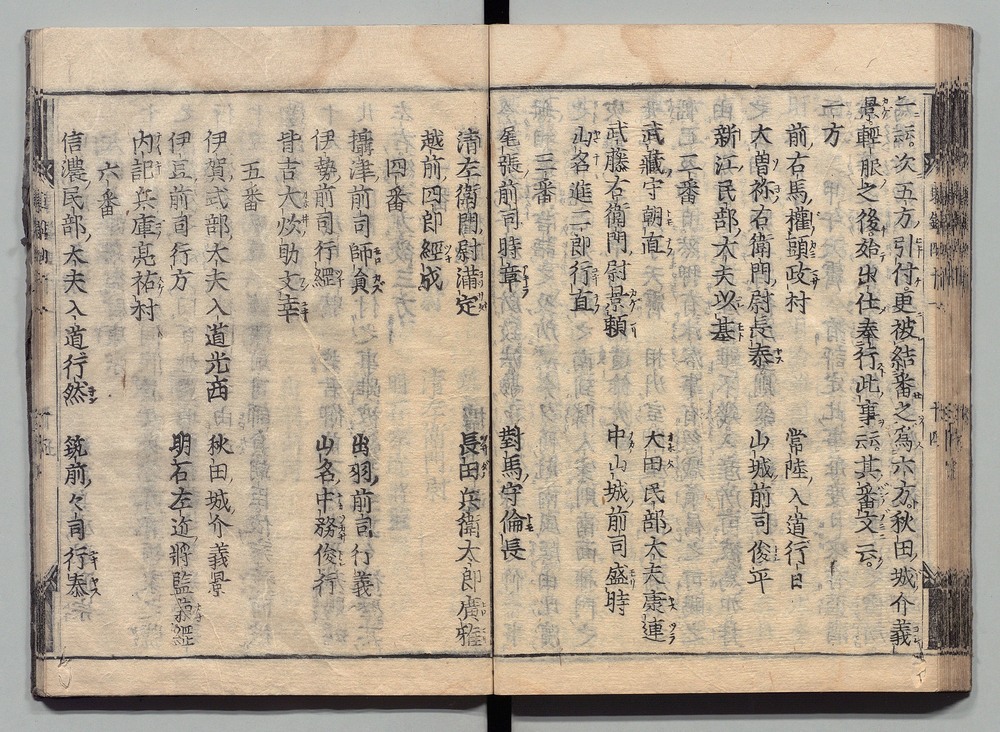 云云次五方引付更被結番之為六方秋田城介義
景輕服之後始出仕奉行此事云云其番文云
一方
前右馬權頭政村　常陸入道行日
大曽祢右衛門尉長泰　山城前司俊平
新江民部大夫以基
二番
武藏守朝直　大田民部大夫康連
武藤右衛門尉景頼　中山城前司盛時
山名進二郎行直
三番
尾張前司時章　對馬守倫長
清左衛門尉満定　長田兵衛太郎廣雅
越前四郎經成
四番
攝津前司師員　出羽前司行義
伊勢前司行經　山名中務俊行
皆吉大炊助文幸
五番
伊賀式部大夫入道光西　秋田城介義景
伊豆前司行方　明石左近將監兼經
内記兵庫亮祐村
六番
信濃民部大夫入道行然　筑前々司行泰